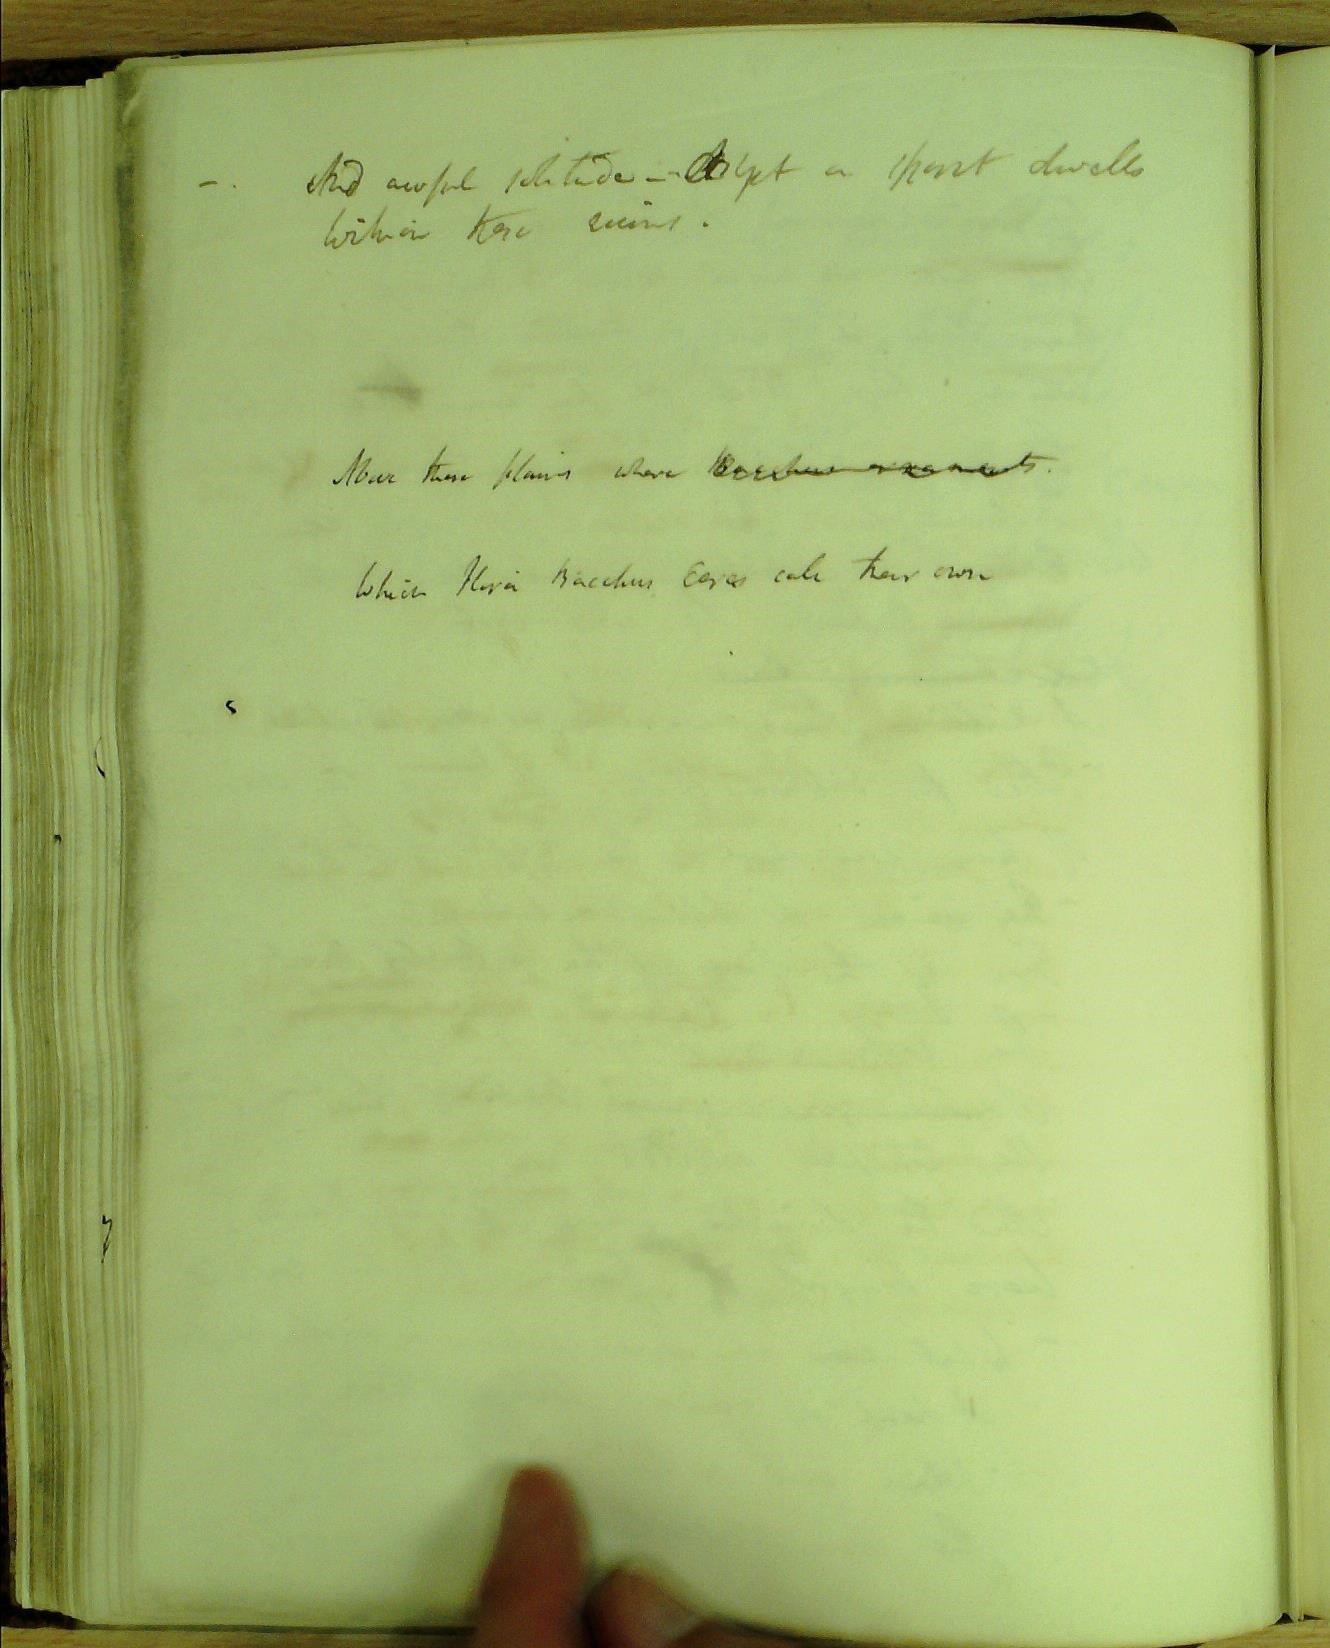 - And awful solitude - yet a spirit dwells
Within these ruins.
Near these plains where Bacchus ornaments.
Which Flora Bacchus Ceres call their own